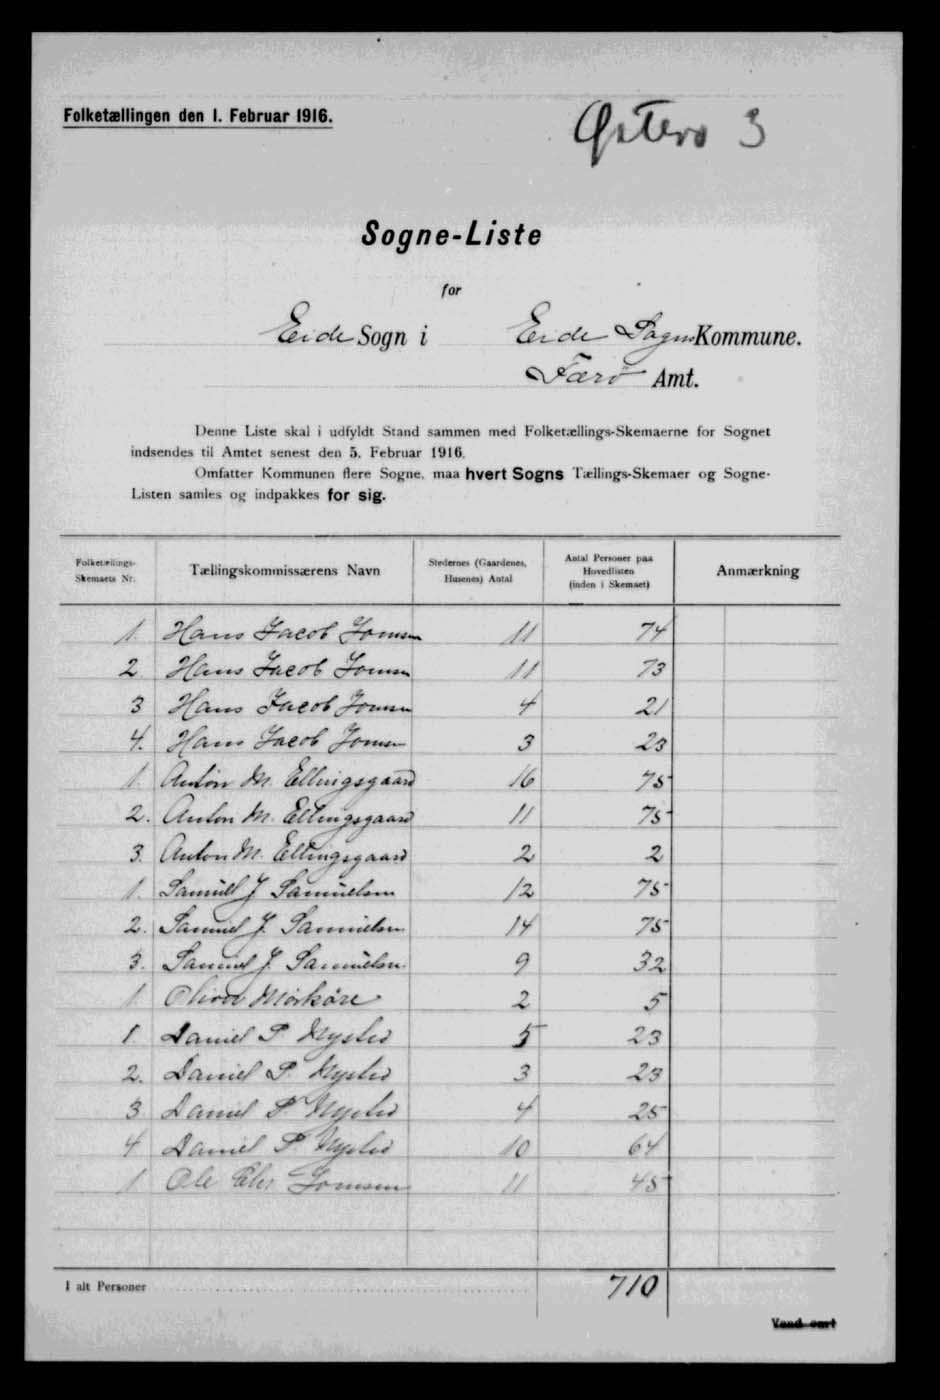 Folketællingen den 1. Februar 1916.
Østerø 3
Sogne-Liste
for
Eide Sogn i Eide Sogns Kommune.
Færø Amt.
Denne Liste skal i udfyldt Stand sammen med Folketællings-Skemaerne for Sognet
indsendes til Amtet senest den 5. Februar 1916.
Omfatter Kommunen flere Sogne, maa hvert Sogns Tællings-Skemaer og Sogne-
Listen samles og indpakkes for sig.
Folketællings-Skemaets Nr. Tællingskommissærens Navn Stedernes (Gaardenes, Husenes) Antal Antal Personer paa Hovedlisten (inden i Skemaet) Anmærkning
1. Hans Jacob Joensen 11 74
2. Hans Jacob Joensen 11 73
3 Hans Jacob Joensen 4 21
4. Hans Jacob Joensen 3 23
1. Anton M. Ellingsgaard 16 75
2. Anton M. Ellingsgaard 11 75
3. Anton M. Ellingsgaard 2 2
1. Samuel J Samuelsen 12 75
2. Samuel J. Samuelsen 14 75
3. Samuel J. Samuelsen 9 32
1 Mörköre 2 5
1 Daniel P. Nysted 5 23
2. Daniel P. Nysted 3 23
3 Daniel P. Nysted 4 25
4 Daniel P. Nysted 10 64
1 Ole Joensen 11 45
I alt Personer 710